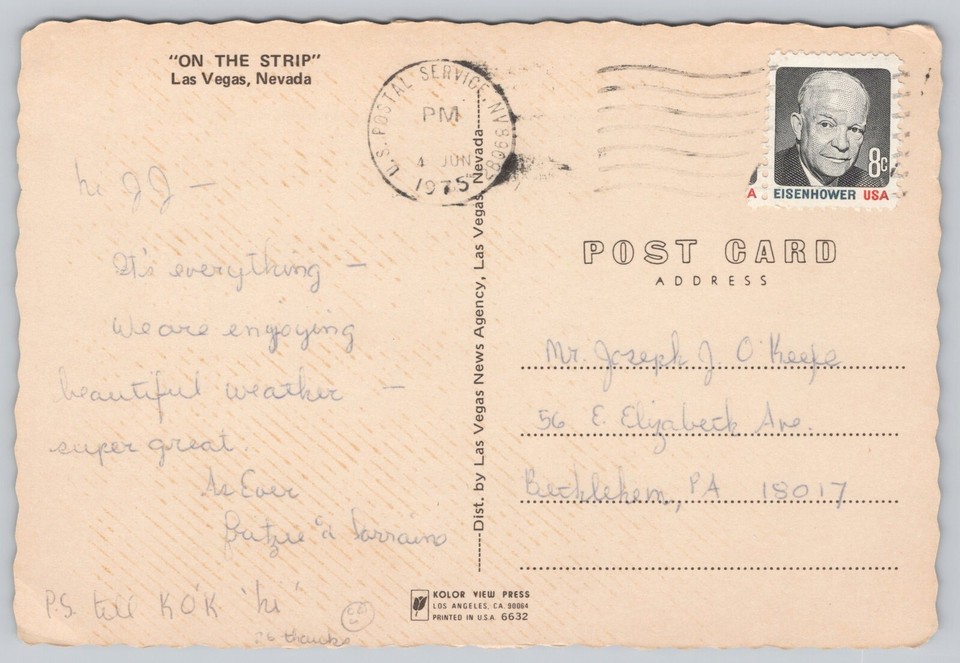 "ON THE STRIP"
Las Vegas, Nevada
U.S. POSTAL SERVICE, NV
PM
4 JUN
1975
8c
A EISENHOWER USA
hi JJ —
It's everything —
We are enjoying
beautiful weather —
super great.
As Ever
& Lorraine
P.S. tell KO'K "hi"
thanks
Dist. by Las Vegas News Agency, Las Vegas, Nevada
POST CARD
ADDRESS
Mr. Joseph J. O'Keefe
56 E. Elizabeth Ave.
Bethlehem, PA 18017
KOLOR VIEW PRESS
LOS ANGELES, CA. 90064
PRINTED IN U.S.A. 6632